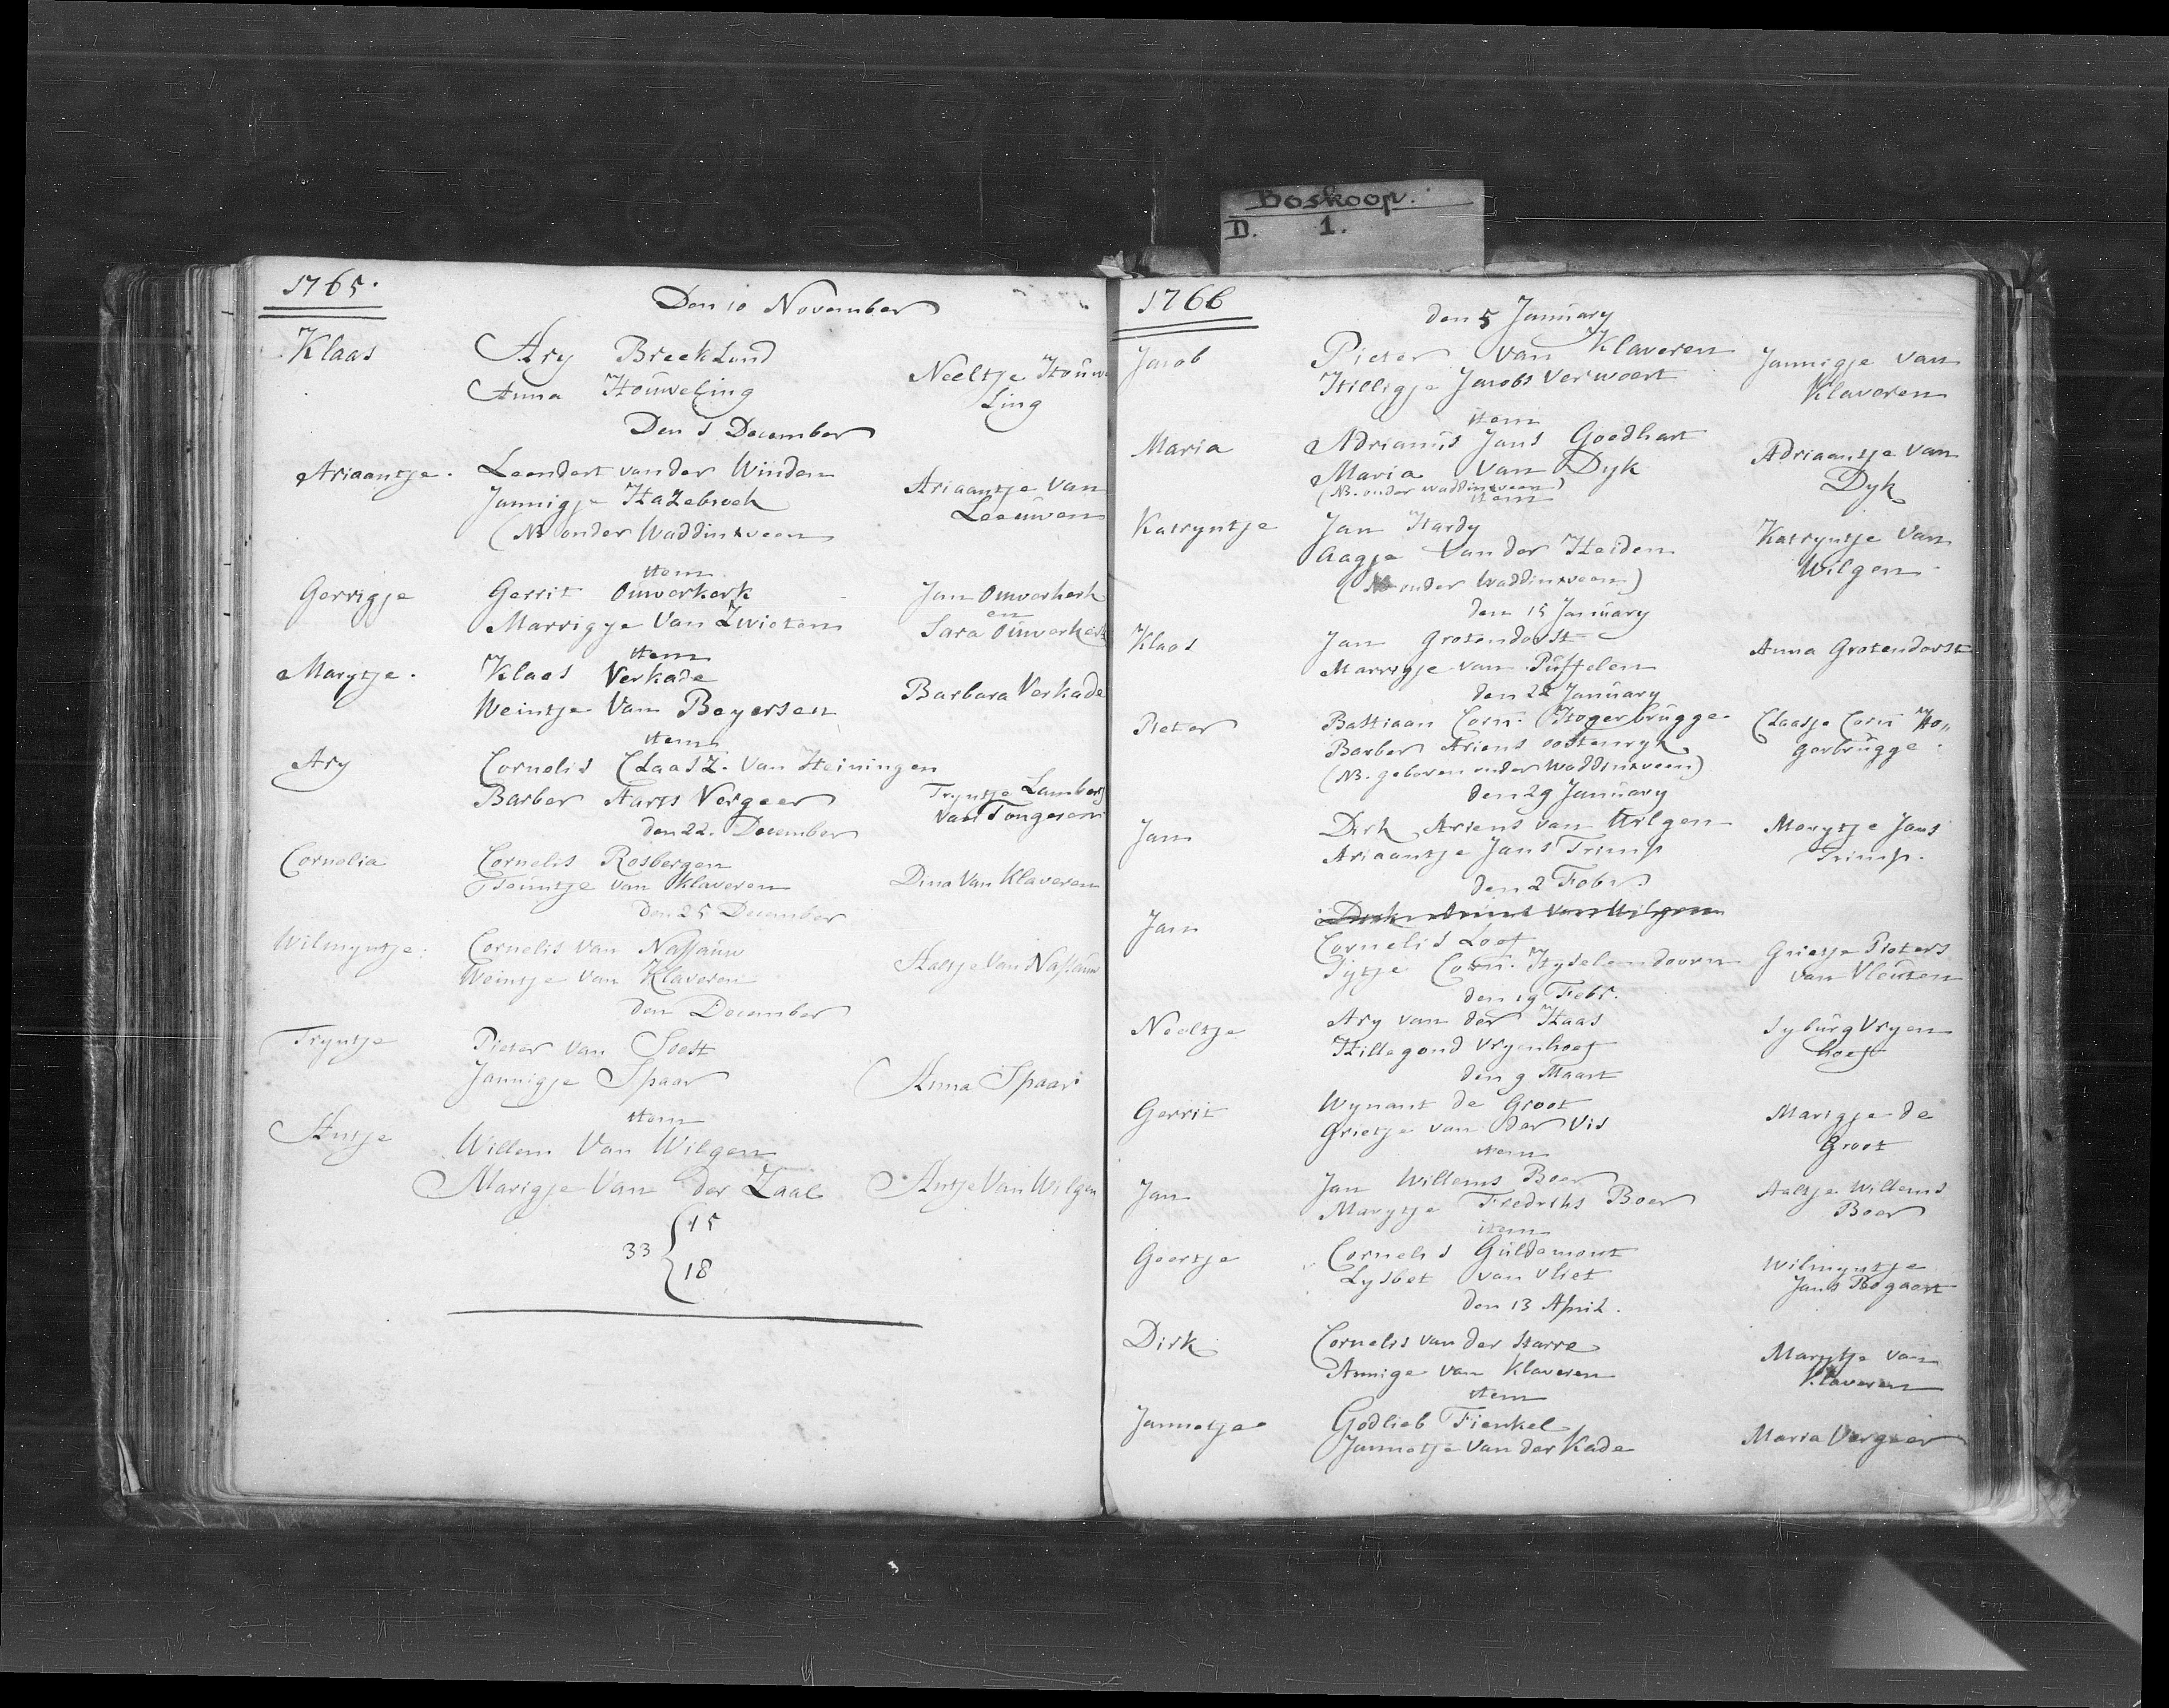 Boskoop.
D. 1.
1765.
Den 10 November
Klaas Ary Breeklund Neeltje Houwe
Anna Houweling Ling
Den 1 December
Ariaantje. Leendert van der Winden Ariaantje Van
Jannigje Hazebroek Leeuwen
(NB onder Waddinxveen
item
Gerrigje Gerrit Ouwerkerk Jan Ouwerkerk
en
Marrigje Van Zwieten Sara Ouwerkerk
item
Marytje. Klaas Verkade Barbara Verkade
Weintje Van Beyersen
item
Ary Cornelis Claasz. van Heiningen
Barber Aarts Vergeer Tryntje Lamberts
Van Tongeren
den 22. December
Cornelia Cornelis Rosbergen Dina Van Klaveren
Teuntje van Klaveren
den 25 December
Wilmyntje: Cornelis van Nassauw Aaltje Van Nassauw
Weintje van Klaveren
den December
Tryntje Pieter van Soest
Jannigje Spaar Anna Spaar
item
Antje Willem Van Wilgen
Marigje Van der Zaal Antje Van Wilgen
33 { 15
18
1766
den 5 January
Jacob Pieter van Klaveren Jannigje van
Hilligje Jacobs Verwoert Klaveren
item
Maria Adrianus Jans Goedhart Adriaantje van
Maria van Dyk Dyk
(NB. onder waddinxveen)
item
Katryntje Jan Hardy Katryntje Van
Aagje van der Heiden Wilgen
(NB onder Waddinxveen)
den 15 January
Klaas Jan Grotendorst Anna Grotendorst
Marrigje van Puffelen
den 22 January
Pieter Bastiaan Corn. Hogerbrugge Claasje Corn Ho„
Barber Ariens oostenryk gerbrugge.
(NB. geboren onder Waddinxveen)
den 29 January
Jan Dirk Ariens van Wilgen Marytje Jans
Ariaantje Jans Trimp Trimp.
den 2 Febr.
Jan Dirk Ariens van Wilgen
Cornelis Loof Grietje Pieters
Pytje Corn. Hyselendoorn van Vleuten
den 19 Febr.
Neeltje Ary van der Haas Syburg Vryen
Hillegond Vryenhoef hoef
den 9 Maart
Gerrit Wynant de Groot Marigje de
Grietje van der Vis Groot
item
Jan Jan Willems Boer Aaltje Willems
Marytje Fredriks Boer Boer
item
Geertje Cornelis Guldemont Wilmyntje
Lysbet van Vliet Jans Bogaert
den 13 April.
Dirk Cornelis van der Starre Marytje van
Annige van Klaveren Klaveren
item
Jannetje Godlieb Fienkel Maria Vergeer
Jannetje van der Kade